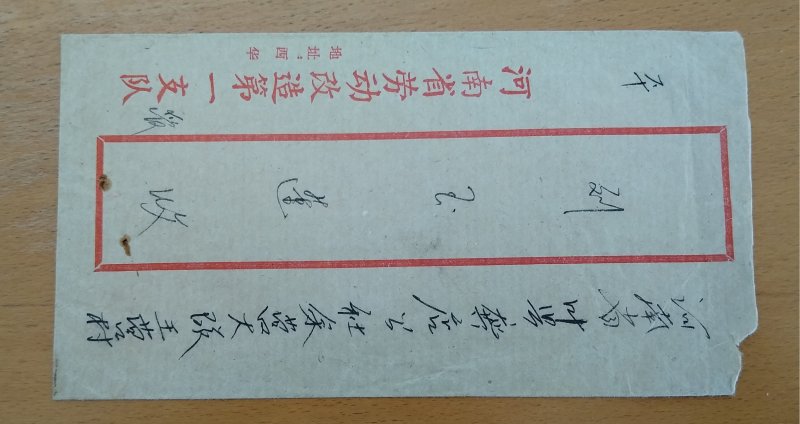 河南省叶县龚店公社余营大队王营村
刘玉莲收
平
河南省劳动改造第一支队
地址：西华